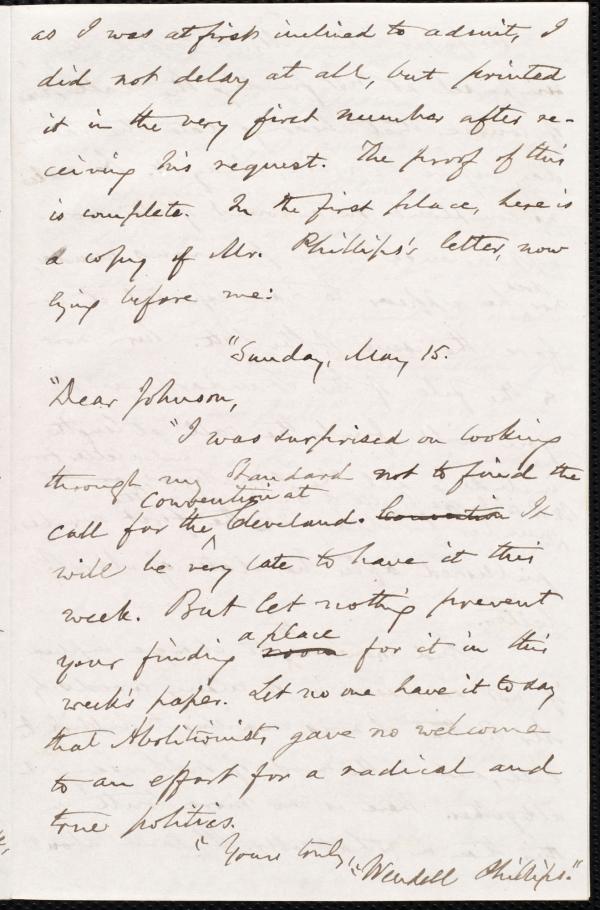 as I was at first inclined to admit, I
did not delay at all, but printed
it in the very first number after re-
ceiving his request. The proof of this
is complete. In the first place, here is
a copy of Mr. Phillips's letter, now
lying before me:
"Sunday, May 15.
"Dear Johnson,
"I was surprised on looking
through my Standard not to find the
Convention at
call for the ^ Cleveland. Convention It
will be very late to have it this
week. But let nothing prevent
a place
your finding room for it in this
week's paper. Let no one have it to say
that Abolitionists gave no welcome
to an effort for a radical and
true politics.
"Yours truly,
"Wendell Phillips."